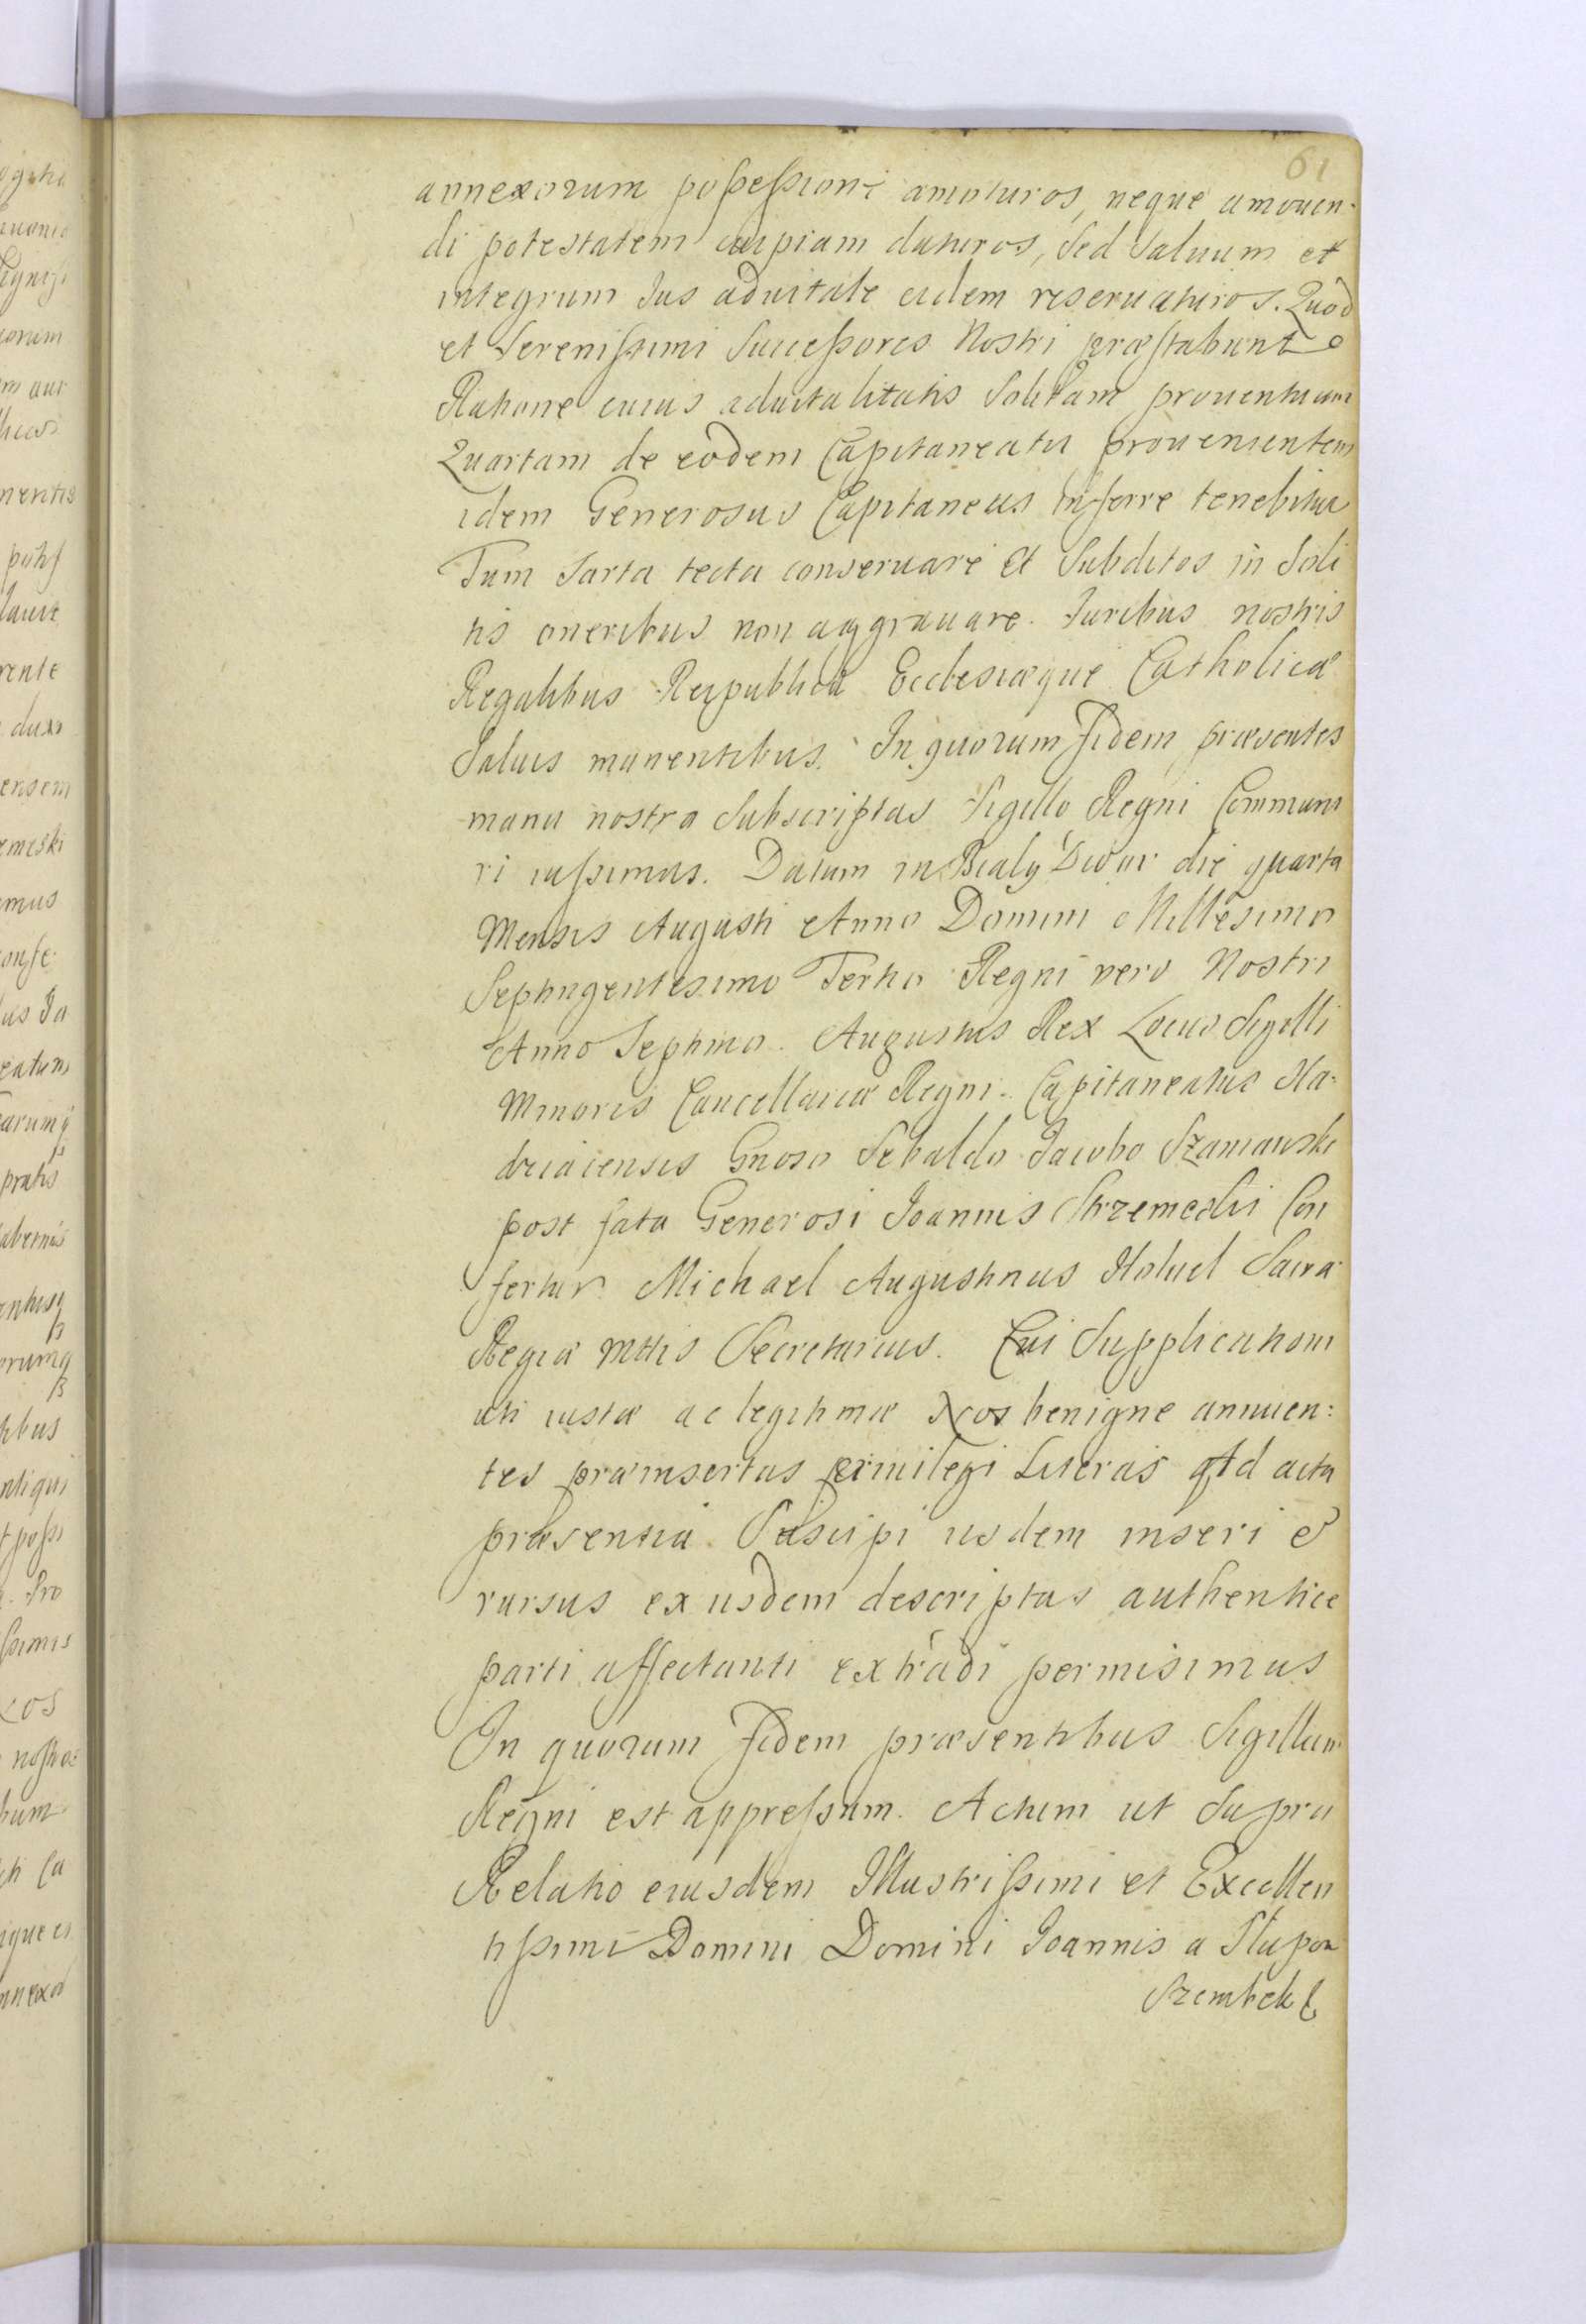 61
annexorum possessione amoturos, neque amouen-
di potestatem cuipiam daturos, Sed Saluum et
integrum Jus aduitale eidem reseruaturos. Quod
et Serenissimi Successores Nostri præstabunt
Ratione cuius aduitalitatis Solitam prouentuum
Quartam de eodem Capitaneatu prouenientem
idem Generosus Capitaneus inferre tenebitur
Tum Sarta tecta conseruare et Subditos in Soli
tis oneribus non aggrauare. Juribus nostris
Regalibus Reipublicæ Ecclesiæque Catholicæ
Saluis manentibus. In quorum fidem præsentes
manu nostra Subscriptas Sigillo Regni Communi
ri iussimus. Datum in Bialy Dwor die quarta
Mensis Augusti Anno Domini Millesimo
Septingentesimo Tertio Regni vero Nostri
Anno Septimo. Augustus Rex Locus Sigilli
Minoris Cancellariæ Regni. Capitaneatus Ha-
dziacensis Gnoso Sebaldo Jacobo Szaniawski
post fata Generosi Joannis Strzemeski Con
fertur Michael Augustinus Holuel Sacræ
Regiæ Mttis Secretarius. Cui Supplicationi
uti iustæ ac legitimæ Nos benigne annuen:
tes præinsertas priuilegi Literas Ad acta
præsentia Suscipi iisdem inseri &
rursus ex iisdem descriptas authentice
parti affectanti extradi permisimus
In quorum fidem præsentibus Sigillum
Regni est appressum. Actum ut Supra
Relatio eiusdem Illustrissimi et Excellen
tissimi Domini Domini Joannis a Slupow
Szembek